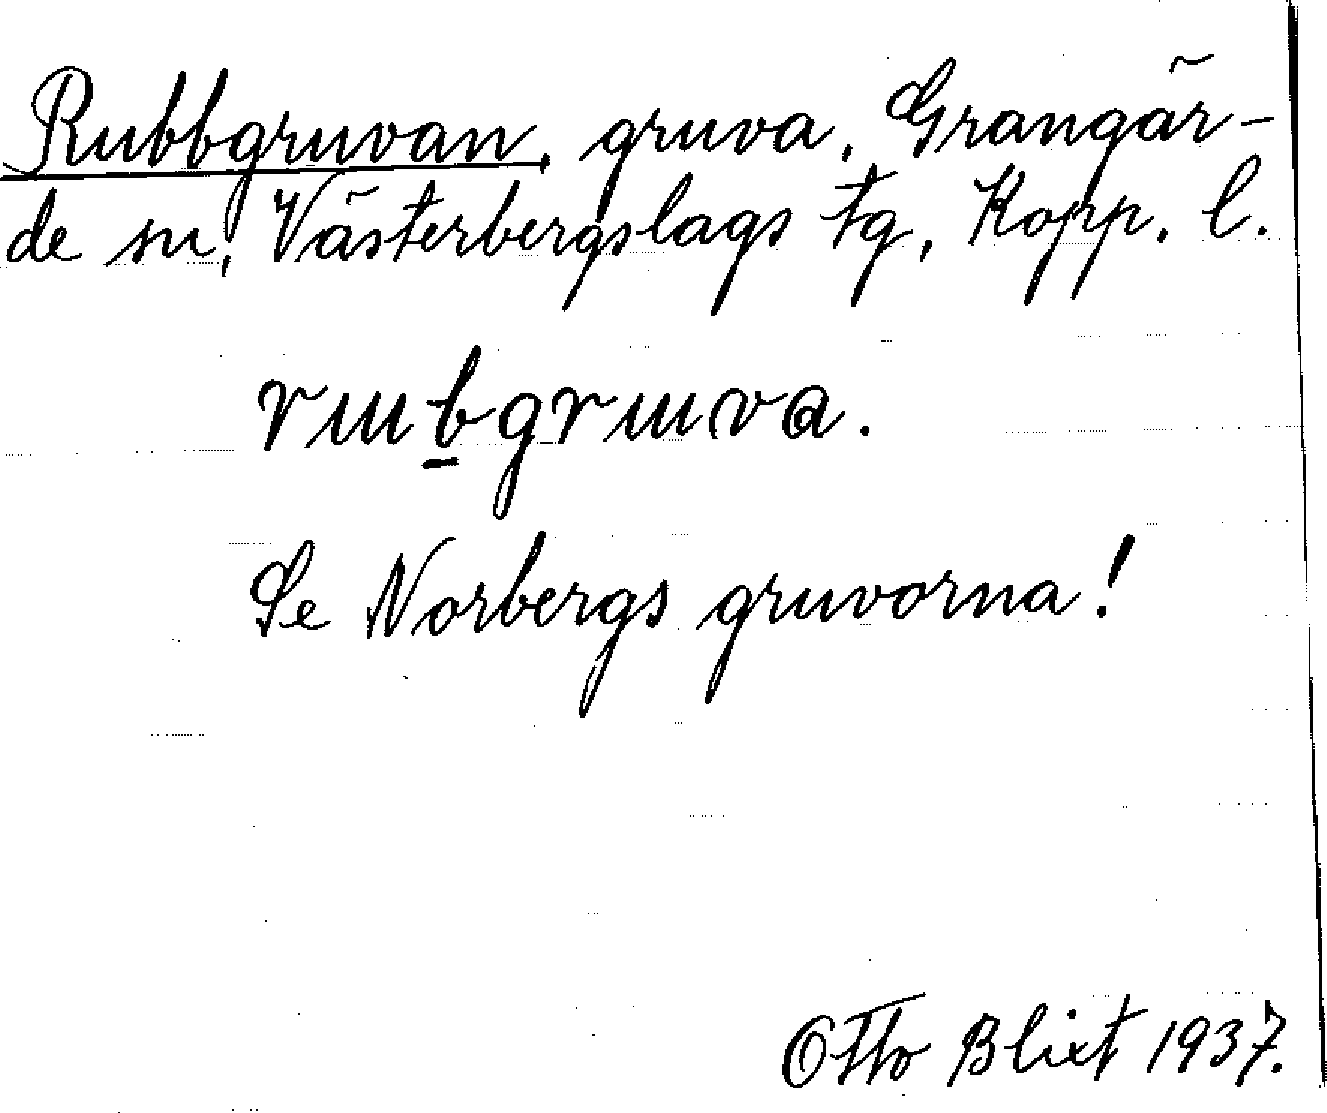 Rubbgruvan, gruva, Grangär-
de sn, Västerbergslags tg, Kopp. l.
rɯbgrɯva.
Se Norbergs gruvorna!
Otto Blixt 1937.